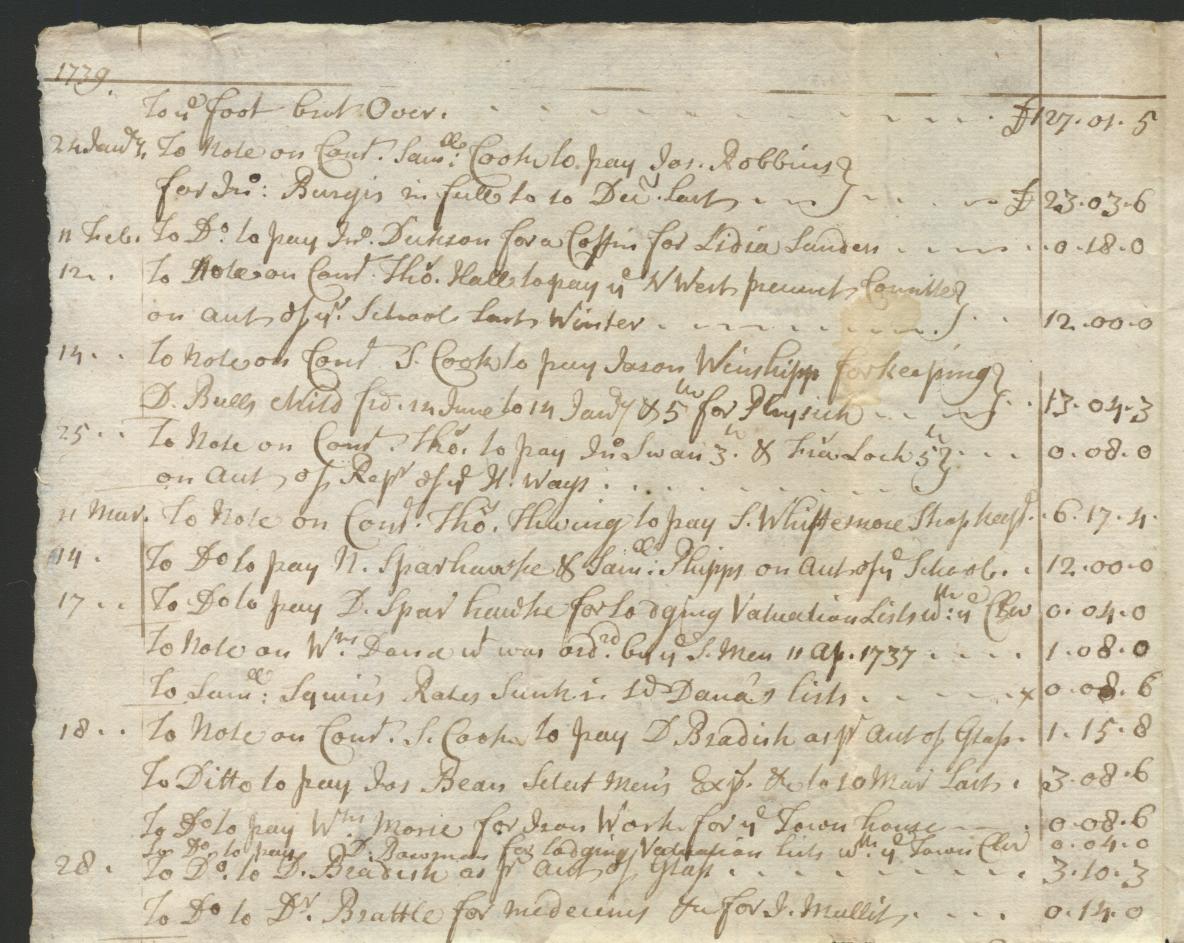 1739.
To ye foot brot Over. £127.01.5
24 Janry. To Note on Const. Samll: Cook to pay Jos. Robbins
for Jno: Burgis in full to 10 Decr. last £23.03.6
11 Feb. To Do. to pay Jno. Dickson for a Coffin for Lidia Landen 0.18.0
12. To Note on Const. Tho. Hall to pay ye N West precinct Comittee
on Acct of ye. School last Winter. 12.00.0
14. To Note on Const S. Cook to pay Jason Winshipp for keeping
D. Bulls Child fro. 14 June to 14 Janry & 5th for Physick 13.04.3
25. To Note on Const Tho. to pay Jno Swan 3. & Fra. Lock 5 0.08.0
on Acct of Repr of ye H. Ways.
11 Mar. To Note on Const. Tho. to pay S. Whittemore Shopkeepr. 6.17.4.
14. To Do to pay N. Sparhawke & Samll: Phipps on Acct of ye School. 12.00.0
17. To Do to pay D. Sparhawke for lodging Valuation Lists wth: ye Cler 0.04.0
To Note on Wm. Dana wt was ordrd. by ye S. Men 11 Ap. 1737 1.08.0
To Samll: Squires Rates Sunk in sd Dana's lists. x 0.08.6
18. To Note on Const. S. Cook to pay D Bradish as pr Acct of Glass. 1.15.8
To Ditto to pay Jos Bean Select Men's Exps. &c to 10 Mar last. 3.08.6
To Do to pay Wm Morse for Iron Work for ye Town house 0.08.6
To Do. to pay D. Bowman for lodging Valuation lists wth. ye Town Cler 0.04.0
28. To Do. to D. Bradish as pr Acct of Glass. 3.10.3
To Do to Dr. Brattle for medecines &c for J. Mullit. 0.14.0